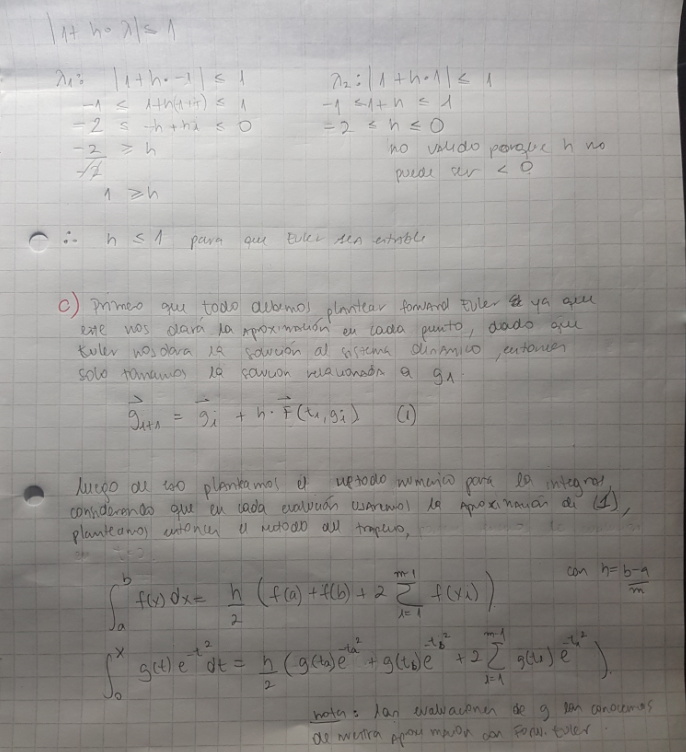 |1 + h · λ| ≤ 1
λ₁: |1 + h · -1| ≤ 1
-1 ≤ 1 + h ≤ 1
-2 ≤ -h + hi ≤ 0
-2/-1 ≥ h
1 ≥ h
λ₂: |1 + h · 1| ≤ 1
-1 ≤ 1 + h ≤ 1
-2 ≤ h ≤ 0
no valido porque h no
puede ser < 0
∴ h ≤ 1 para que Euler sea estable
c) Primero que todo debemos plantear forward Euler ya que
este nos dará la aproximación en cada punto, dado que
Euler nos dara la solución al sistema dinámico, entonces
solo tomamos la solución relacionada a g₁.
g⃗ᵢ₊₁ = g⃗ᵢ + h · F⃗(tᵢ, gᵢ) (1)
luego de eso planteamos el metodo numerico para la integral,
considerando que en cada evaluación usaremos la aproximación de (1),
planteamos entonces el metodo del trapecio,
∫ₐᵇ f(x) dx = h/2 (f(a) + f(b) + 2 ∑ᵢ₌₁ᵐ⁻¹ f(xᵢ)) con h = b-a/m
∫₀ˣ g(t) e^(-t²) dt = h/2 (g(tₐ) e^(-tₐ²) + g(t_b) e^(-t_b²) + 2 ∑ᵢ₌₁ᵐ⁻¹ g(tᵢ) e^(-tᵢ²)).
nota: las evaluaciones de g las conocemos
de nuestra aproximación con Forw. Euler.